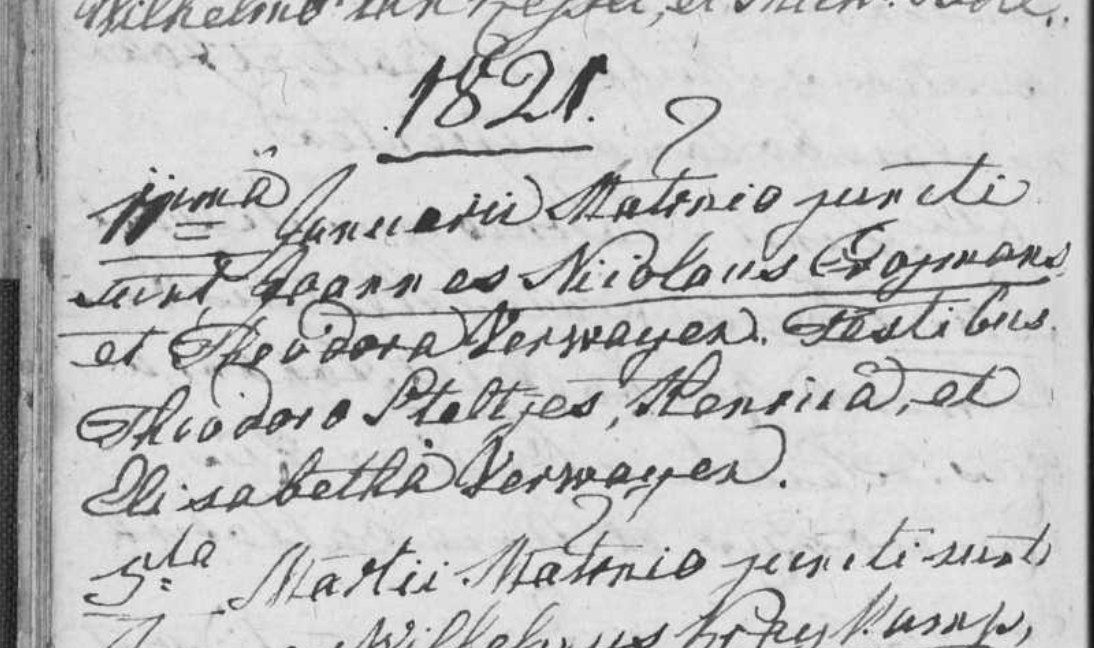 Wilhelmo van et
1821.
11mâ Januarii Matrnio juncti
sunt Joannes Nicolaus Copmans
et Theodora Verwayen. Testibus
Theodoro Steltjes, Henricâ, et
Elisabethâ Verwayen.
5ta Martii Matrnio juncti sunt
Wilhelmus